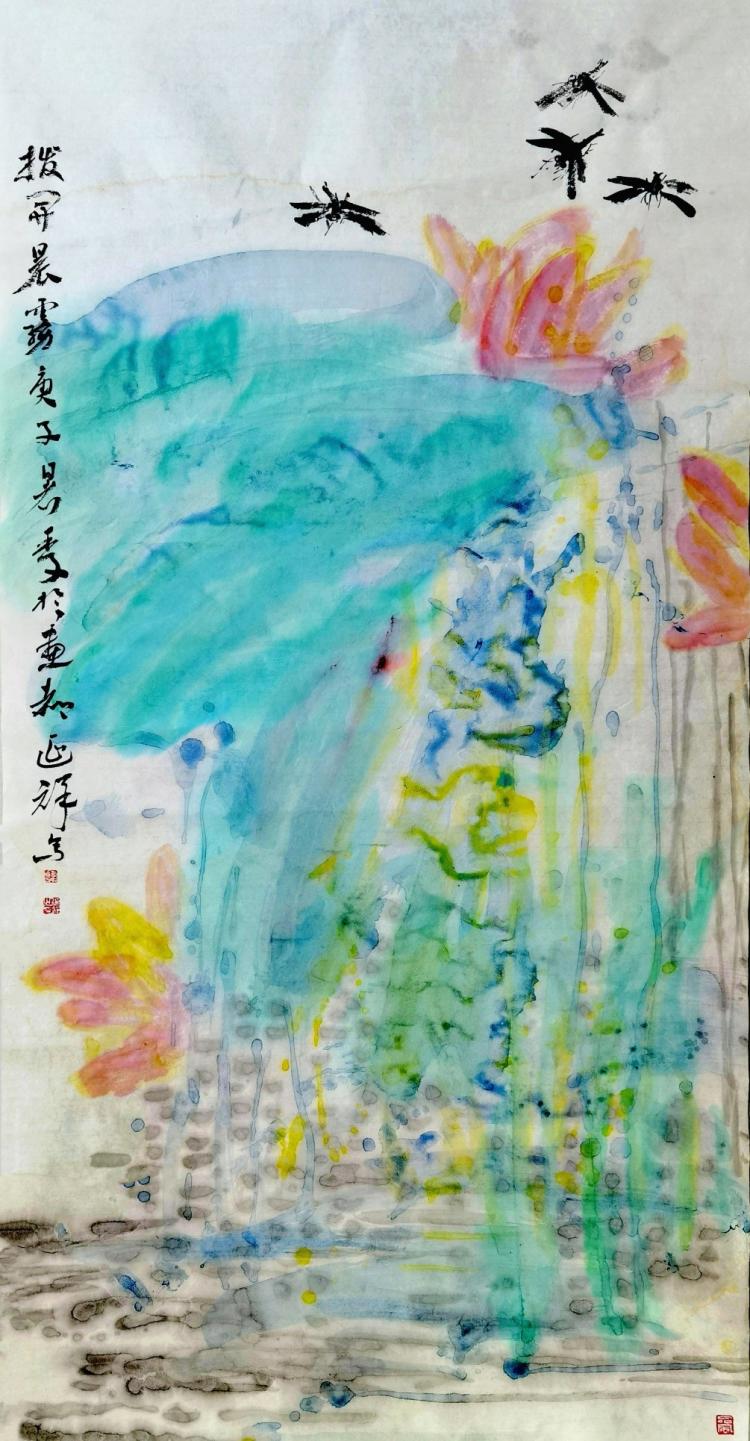 拨开晨雾庚子暑季于画都延祥写